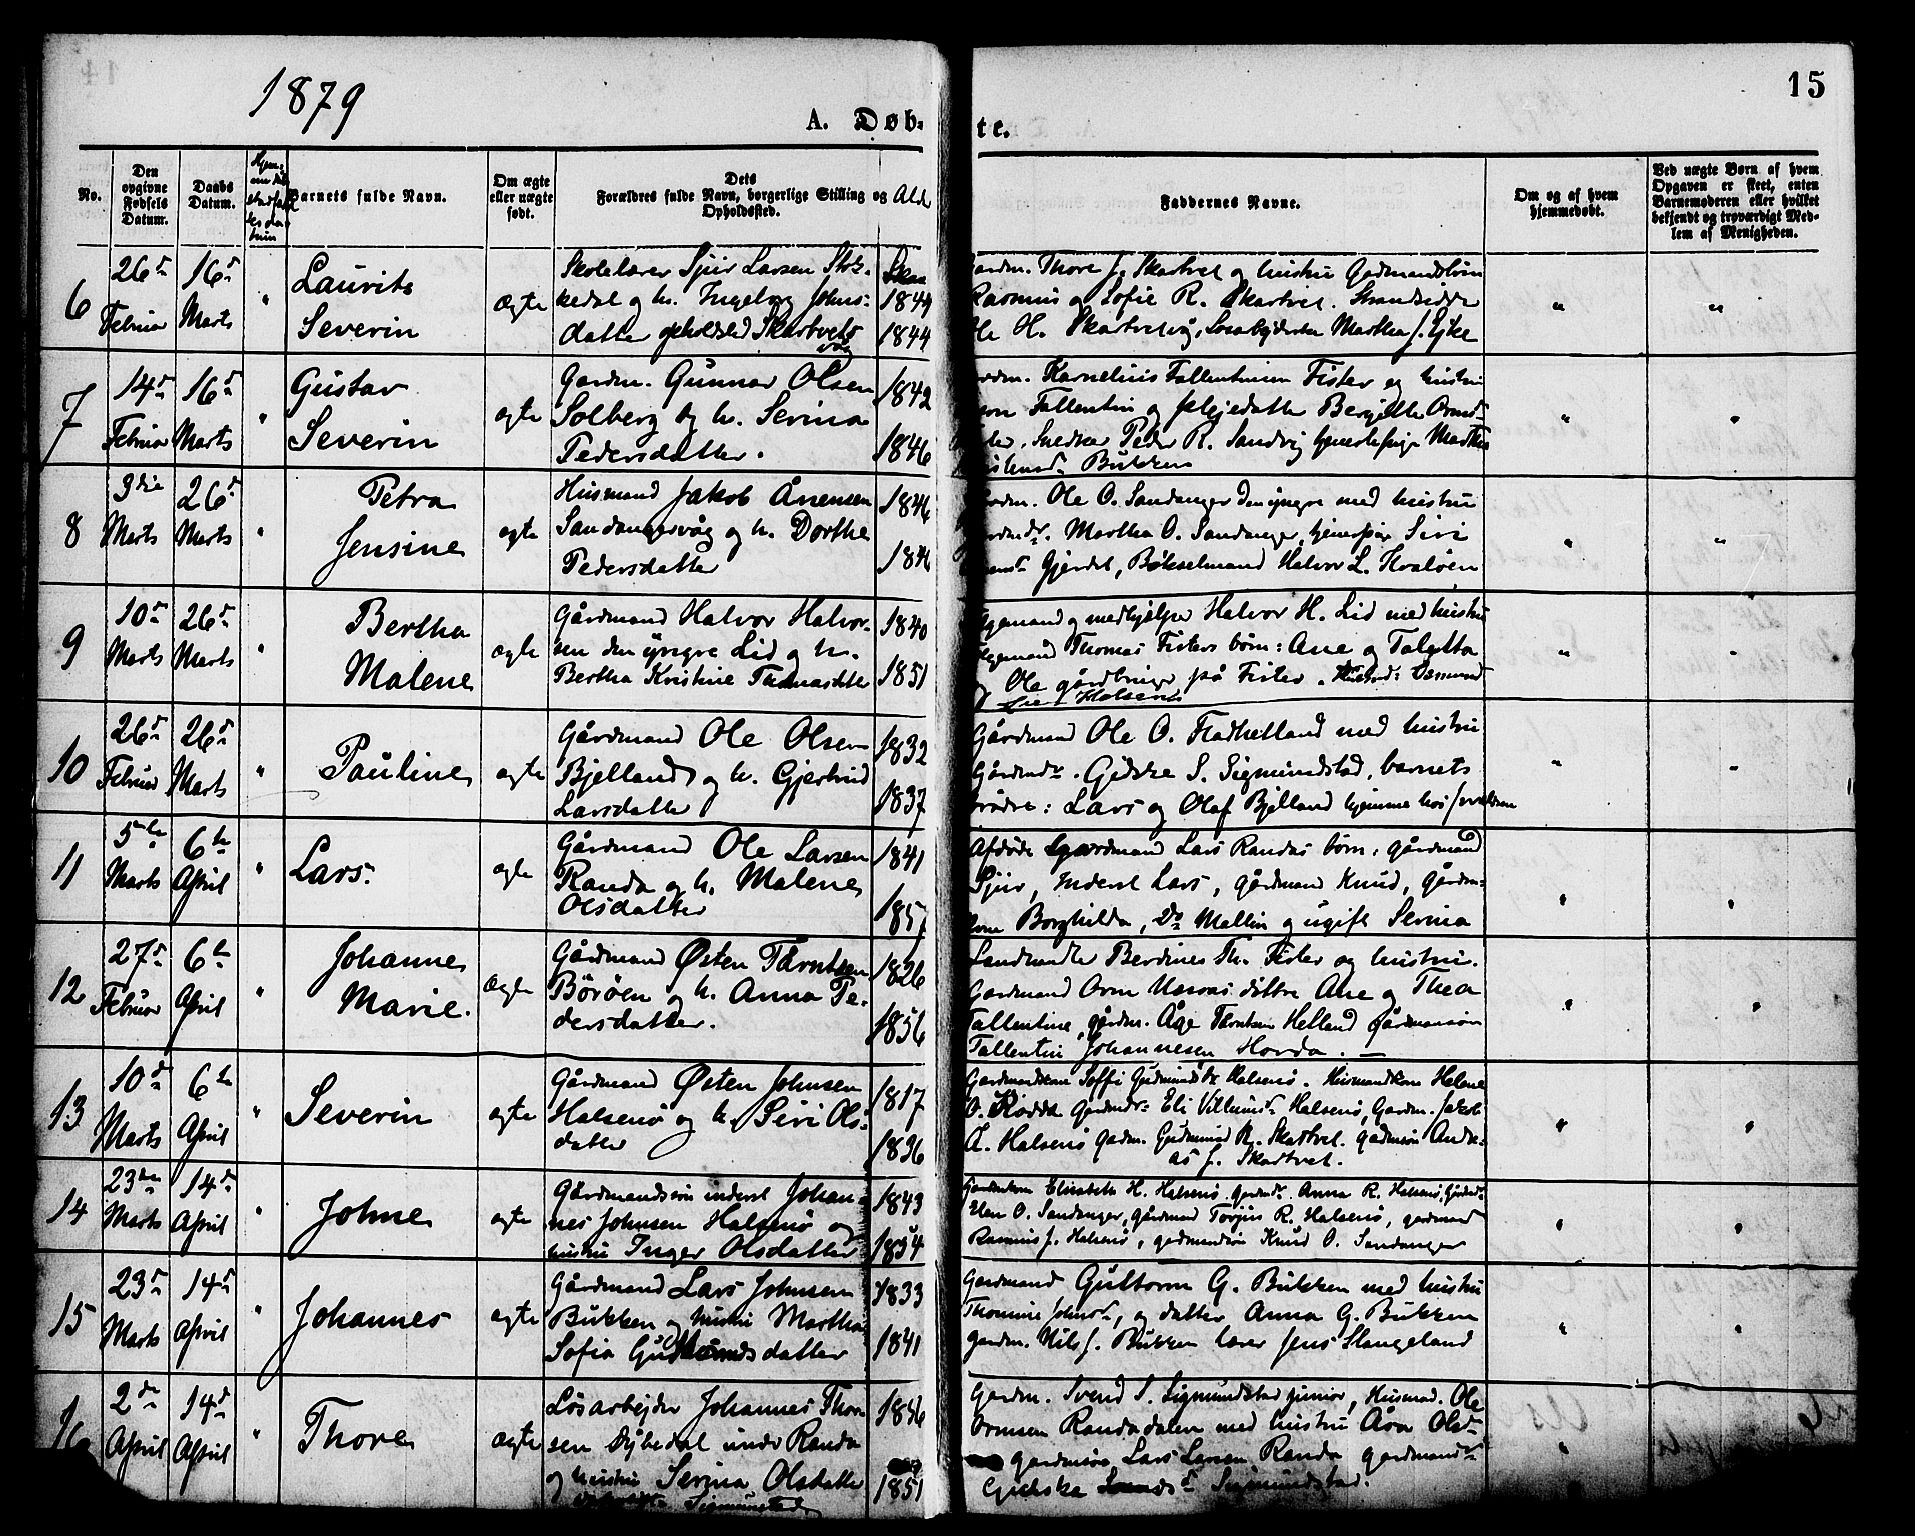 1879
15
A. Døb-
te.
No.
Den opgivne Fødsels Datum.
Daabs Datum.
Barnets fulde Navn.
Om ægte eller uægte født.
Dets
Forældres fulde Navn, borgerlige Stilling og
Opholdssted.
Faddernes Navne.
Om og af hvem hjemmedøbt.
Ved uægte Børn af hvem Opgaven er skeet, enten Barnemoderen eller hvilket bekjendt og troværdigt Medlem af Menigheden.
6
26de Februar
16de Marts
"
Laurits
Severin
Ægte
Skolelærer Sjur Larsen Stok-
kedal og h. Ingeborg Johns-
datter opholdsted Skartveit
våg
1844
1844
Gardm. Thore J. Skartvet og hustru Gardmandsbørn
Rasmus og Sofie R. Skartvet. Strandsidde
Ole H. Skartvetvåg, Martha J. Eike
"
"
7
14de Februar
16de Marts
"
Gustav
Severin
ægte
Gardm. Gunnar Olsen
Solberg og h. Serina
Pedersdatter.
1842
1846
Kornelius Fallentinsen Fister og hustru
Fallentin og
Snedker Peder R. Sandvig Martha
Bukken
"
"
8
3die Marts
26de Marts
"
Petra
Jensine
ægte
Husmand Jakob Ånensen
Sandangervåg og h. Dorthe
Pedersdatter
1846
1846
Ole O. Sandanger den yngre med hustru
Martha O. Sandanger, Siri
Gjerdet, Bøkselmand Halvor L. Kvaløen
"
"
9
10de Marts
26de Marts
"
Bertha
Malene
ægte
Gårdmand Halvor Halvor-
sen den yngre Lid og h.
Bertha Kristine Thomasdtter
1840
1851
og medhjælper Halvor H. Lid med hustru
Thomas Fisters børn: Ane og Taletta
Ole på Fister. Osmund
Halsene
"
"
10
26de Februar
26de Marts
"
Pauline
ægte
Gårdmand Ole Olsen
Bjelland og h. Gjertrud
Larsdatter
1832
1837
Gårdmand Ole O. Fladhetland med hustru
Gårdmdr. Gidske S. Sigmundstad, barnets
brødre: Lars og Olaf Bjelland hjemme hos forældren
"
"
11
5te Marts
6te April
"
Lars.
ægte
Gårdmand Ole Larsen
Randa og h. Malene
Olsdatter
1841
1857
Afdøde gardmand Lars Randas børn, gårdmand
Sjur, Inderst Lars, gårdmand Knud, gårdm-
kone Borghilda, Do Mallin og ugift Serina
"
"
12
27de Februar
6te April
"
Johanne
Marie.
Ægte
Gårdmand Østen Tårntsen
Børøen og h. Anna Pe-
dersdatter.
1826
1856
Berdines Th. Fister og hustru.
Gardmand Orm døttre Ane og Thea
Fallentine, gårdm. Åge Tårntsen Helland gårdmansøn
Fallentin Johannesen Horda. —
"
"
13
10de Marts
6te April
"
Severin
ægte
Gårdmand Østen Johnsen
Halsenø og h. Siri Ols-
datter
1817
1836
Gardmandkone Soffi Halsenø. Husmandkone Helene
O. Eli Halsenø, Gardm. Jakob
A. Halsenø gadm. Gudmund R. Skartvet. gadmsøn Andre-
as J. Skartvet.
"
"
14
23de Marts
14de April
"
Johne
ægte
Gårdmandssøn inderst Johan-
nes Johnsen Halsenø og
hustru Inger Olsdatter
1843
1854
Elisabeth H. Halsenø Anna R. Halsenø,
Elen O. Sandanger, gårdmand Torjus R. Halsenø, gardmand
Rasmus J. Halsenø, gardmandsøn Knud O. Sandanger
"
"
15
23de Marts
14de April
"
Johannes
ægte
Gårdmand Lars Johnsen
Bukken og hustru Martha
Sofia Guttormsdatter
1833
1841
Gardmand Guttorm G. Bukken med hustru
Thomine Johnsdr, og datter Anna G. Bukken
gardm. Nils J. Bukken lærer Jens Slangeland
"
"
16
2den April
14de April
"
Thore
ægte
Løsarbejder Johannes Thor-
sen Dybedal under Randa
og hustru Serina Olsdatter
Sigmunstad
1846
1851
Gardm. Svend S. Sigmundstad junior, Husmad. Ole
Ormsen Randadalen med hustru Åsa Olsdr
gårdmsøn Lars Larsen Randa gardmandsdr
Gidske Svendsdr Sigmundstad.
"